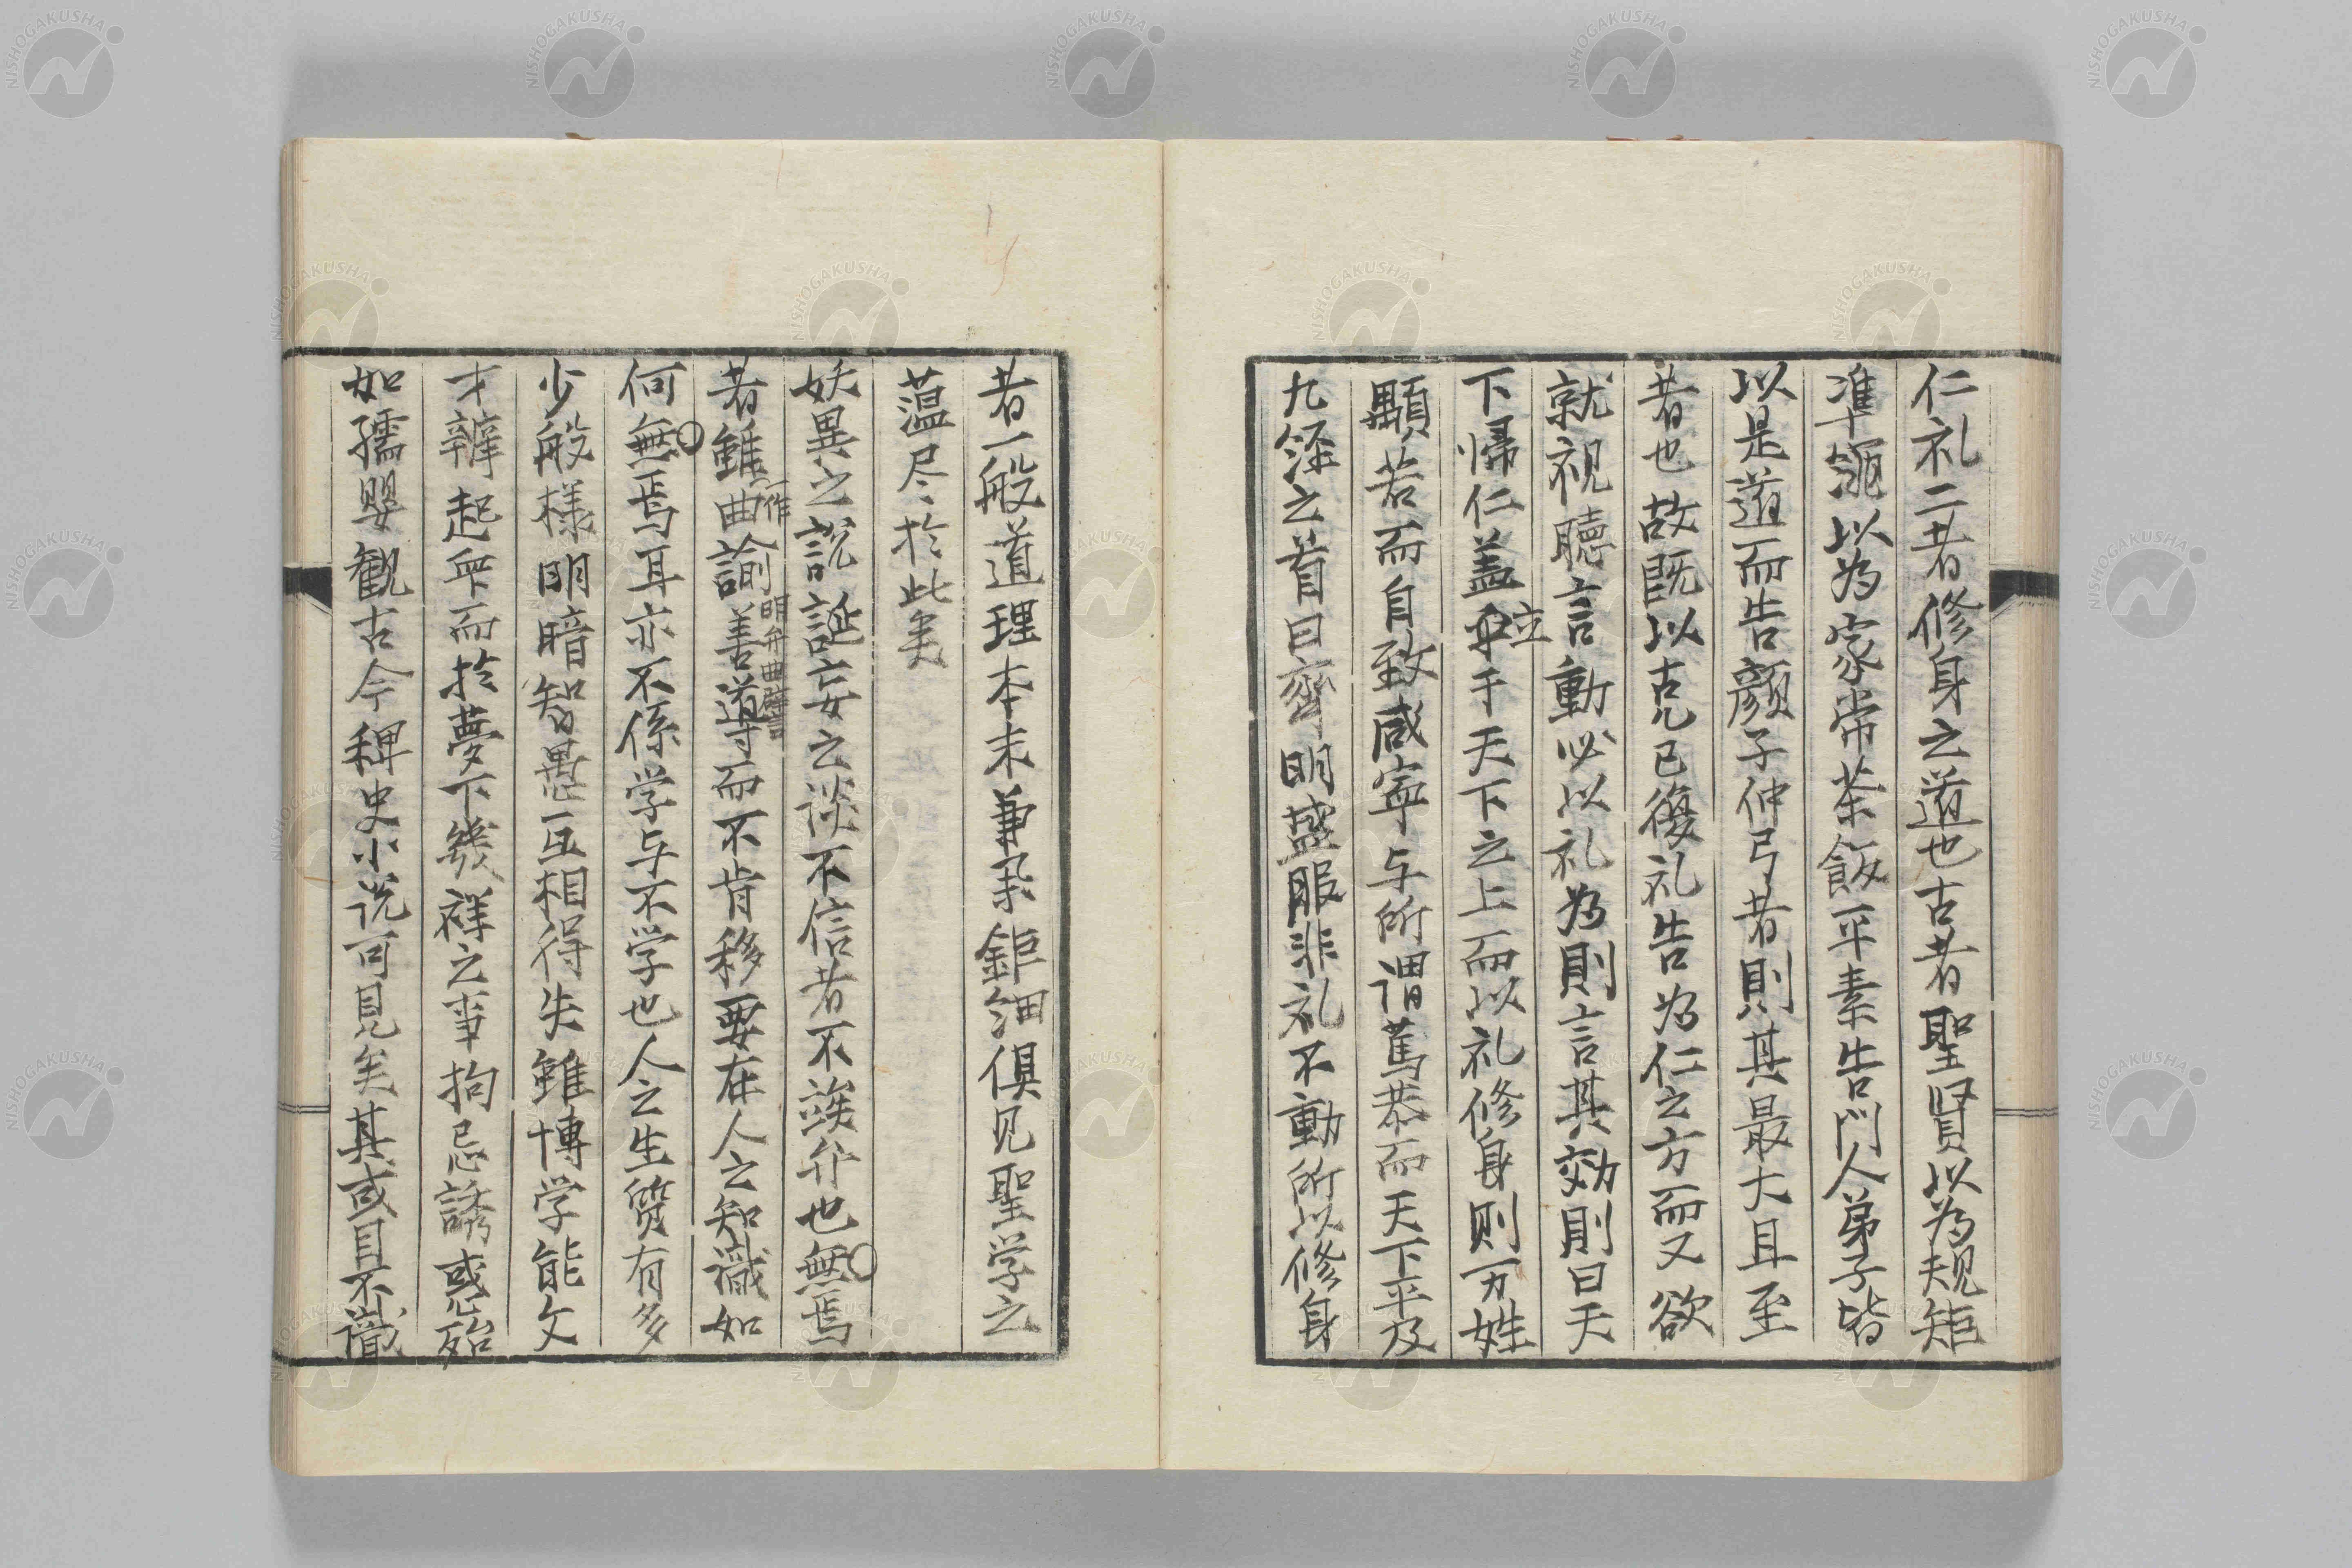 仁礼二者修身之道也古者聖賢以為規矩
準繩以為家常茶飯平素告門人弟子皆
以是道而告顔子仲弓者則其最大且至
者也故既以克己復礼告為仁之方而又欲
就視聴言動必以礼為則言其効則曰天
下帰仁盖立于天下之上而以礼修身則万姓
顒若而自致咸寧与所謂篤恭而天下平及
九経之首曰齊明盛服非礼不動所以修身
者一般道理本末兼 鉅細倶见聖学之
薀尽於此矣
妖異之説誕妄之談不信者不竢弁也無焉
者雖曲諭善導而不肯移要在人之知識如
一作
明弁曲 
何無焉耳亦不係学与不学也人之生質有多
少般様明暗智愚互相得失雖博学能文
才辨起衆而於夢卜機祥之事拘忌誘惑殆
如孺嬰観古今稗史小说可見矣其或目不識
NISHOGAKUSHA